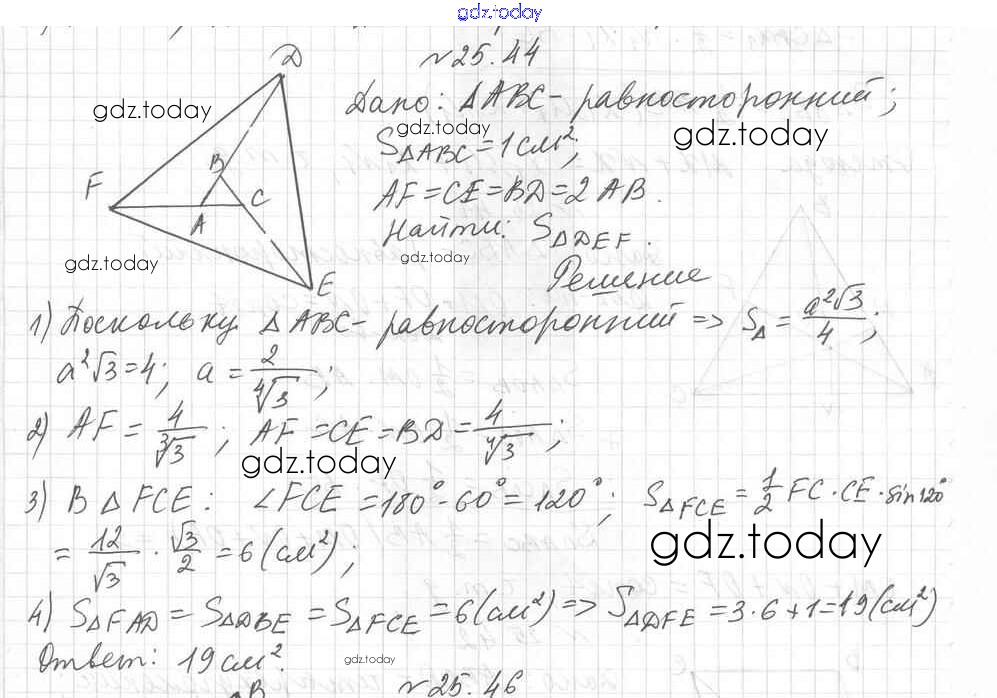 gdz.today
№25.44
D
gdz.today
Дано: ΔABC - равносторонний;
gdz.today
S_ΔABC = 1 см²;
gdz.today
B
F
C
A
AF = CE = BD = 2 AB.
Найти: S_ΔDEF.
gdz.today
gdz.today
E
Решение
1) Поскольку ΔABC - равносторонний => S_Δ = a²√3/4;
a²√3 = 4; a = 2/∜3;
2) AF = 4/∛3; AF = CE = BD = 4/∜3;
gdz.today
3) В ΔFCE: ∠FCE = 180° - 60° = 120°; S_ΔFCE = 1/2 FC · CE · sin120°
= 12/√3 · √3/2 = 6 (см²);
gdz.today
4) S_ΔFAD = S_ΔDBE = S_ΔFCE = 6 (см²) => S_ΔDFE = 3·6+1 = 19 (см²)
Ответ: 19 см².
gdz.today
B
№25.46